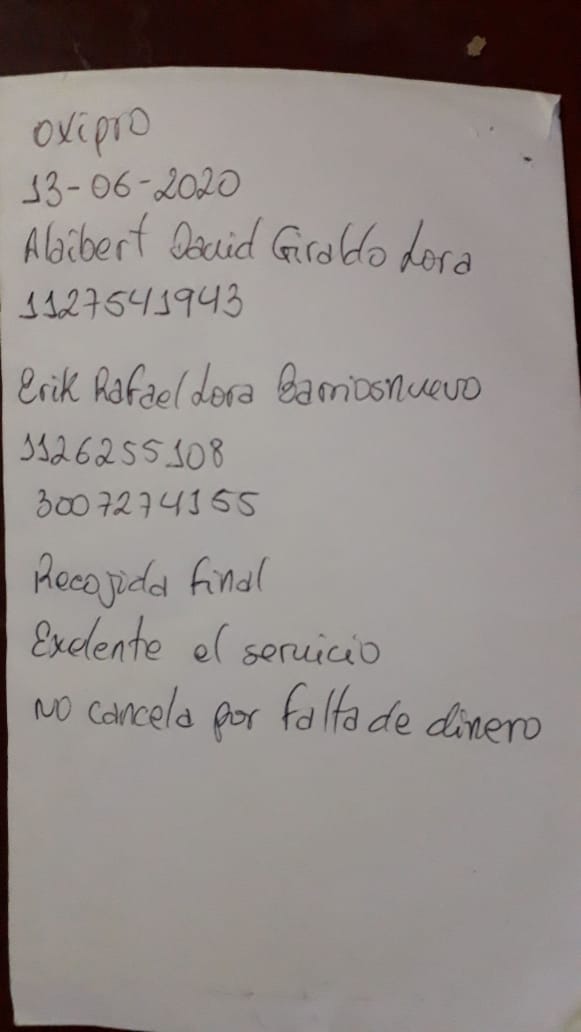 oxipro
13-06-2020
Alaibert David Giraldo Lora
1127541943
Erik Rafael Lora Barriosnuevo
1126255108
3007274155
Recojida final
Exelente el servicio
No cancela por falta de dinero